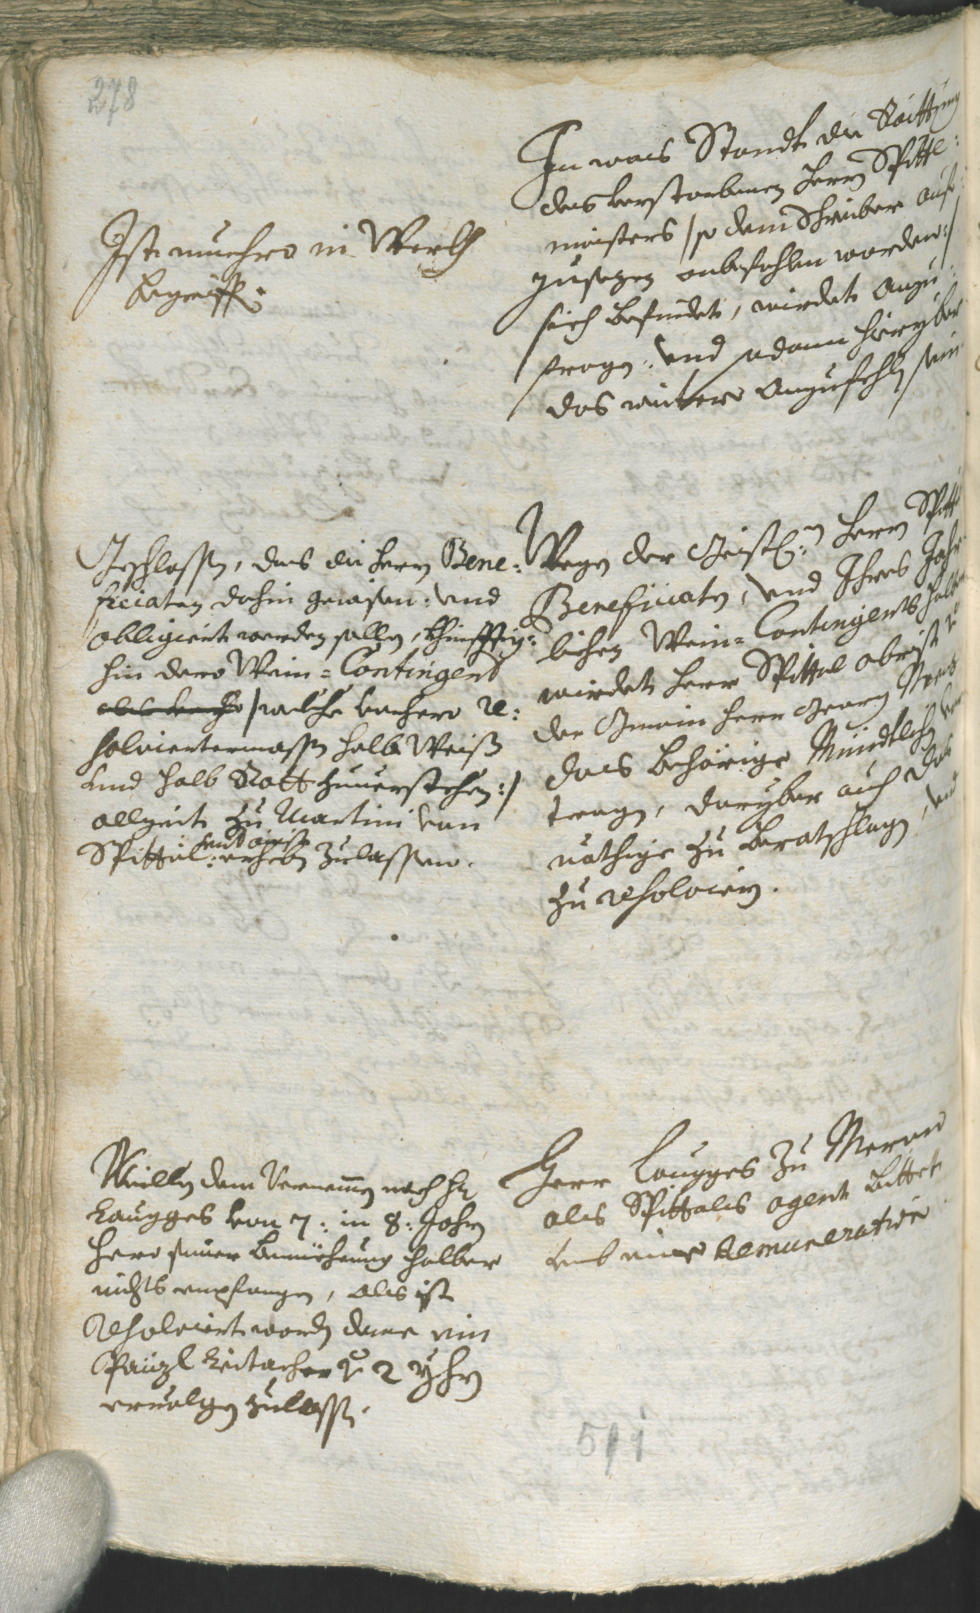 278
In was Standt die Raittung
des verstorbenen Herrn Spittl=
maisters /so dem Schreiber auf=
zusezen anbefohlen worden:/
sich befindet, wirdet anzu=
fragen: und sodann hierüber
das weitere anzufehlen sein
Ist nunehro in Werkh
begriffen.
Wegen der Geistl:en Herrn Spittl
Beneficiaten, und Ihres Jähr=
lichen Wein=Contingents halber
wirdet Herr Spittal obrist
der Gmain Herr Georg
das behörige Mündtlich vor=
tragen, darüber auch das
nöthige zu beratschlagen, und
zu resolvieren.
Geschlossen, das die Herrn Bene=
ficiaten dahin gewisen: und
obligiert werden sollen, khünfftig=
hin dero Wein=Contingent
/welche vorhero re:
solviertermassen halb Weiß
und halb Rott zuuerstehen:/
allzeit zu Martini von
Spittal erheben zulassen.
Herr Laugges zu Meran
als Spittals agent bittet
umb eine Remuneration
Weillen dem Vernemmen nach H:
Laugges von 7: in 8: Jahren
hero seiner bemüehung halber
nichts empfangen, als ist
resolviert worden deme ein
Panzl Leitacher P 2 Yhrn
ervolgen zulassen.
511